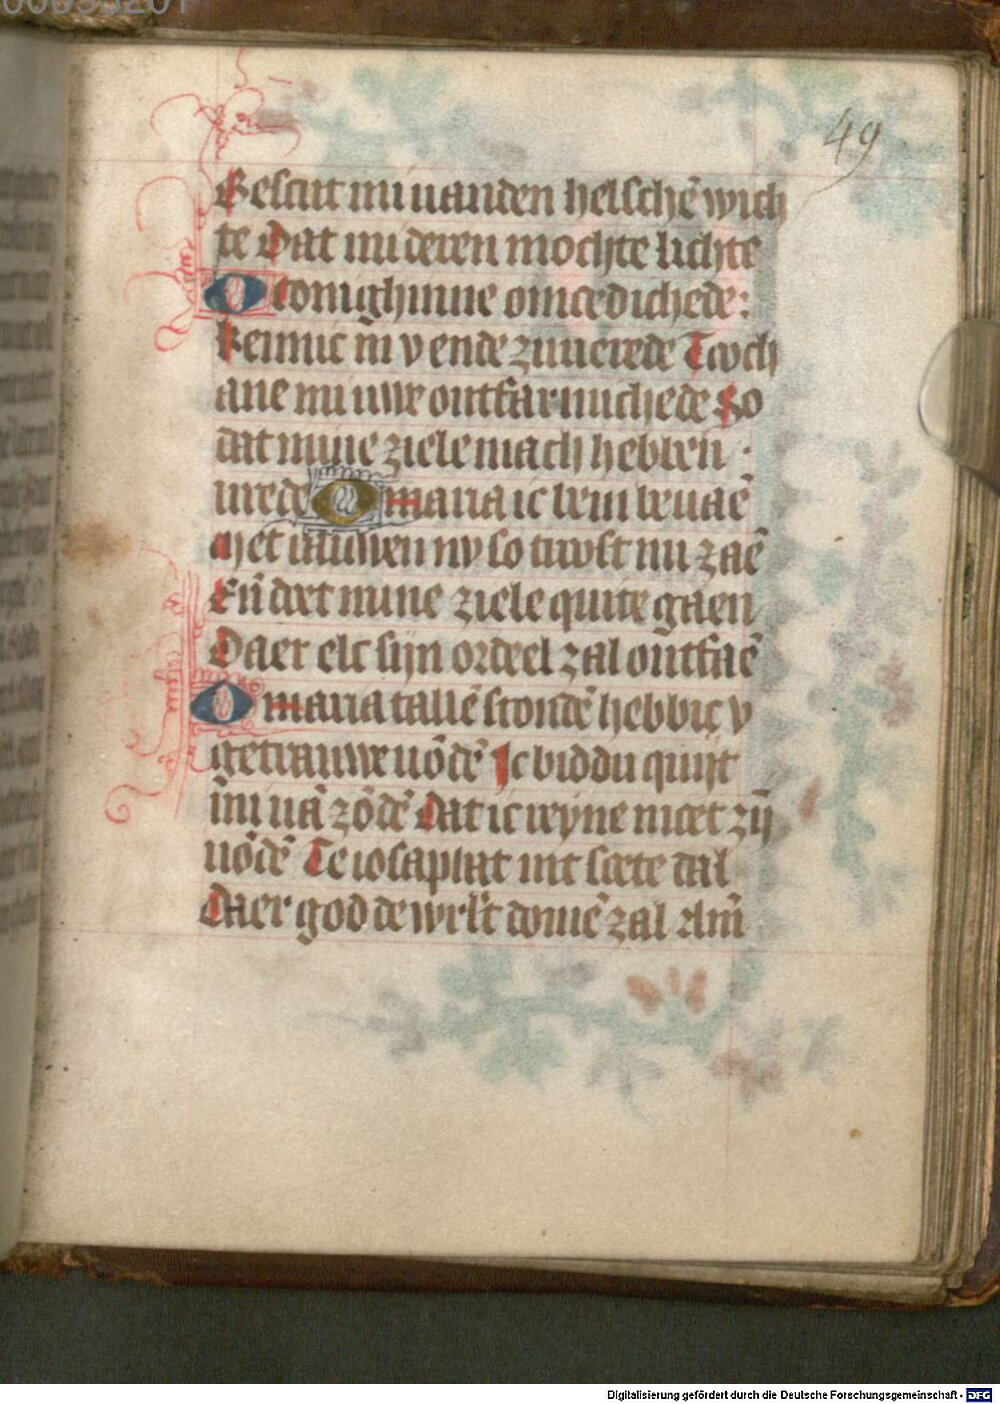 49
Bescut mi uanden helschē wich
te Dat mi deren mochte lichte
O conighinne omœdichede:
kennic in v ende zuuerede Troch
ane mi uwe ontfarmichede So
dat mine ziele mach hebben :
urede O maria ic bem beuaē
Met ruuwen nv so troost mi zaē
Eñ doet mine ziele quite gaen
Daer elc sijn ordeel zal ontfaē
O maria tallē stondē hebbic v
getrauwe uōdē Ic biddu quijt
mi uā zōdē Dat ic ieyne niet zij
uōdē Te iosaphat int soete dal
Daer god de werlt domē zal Am̄
Digitalisierung gefördert durch die Deutsche Forschungsgemeinschaft - DFG